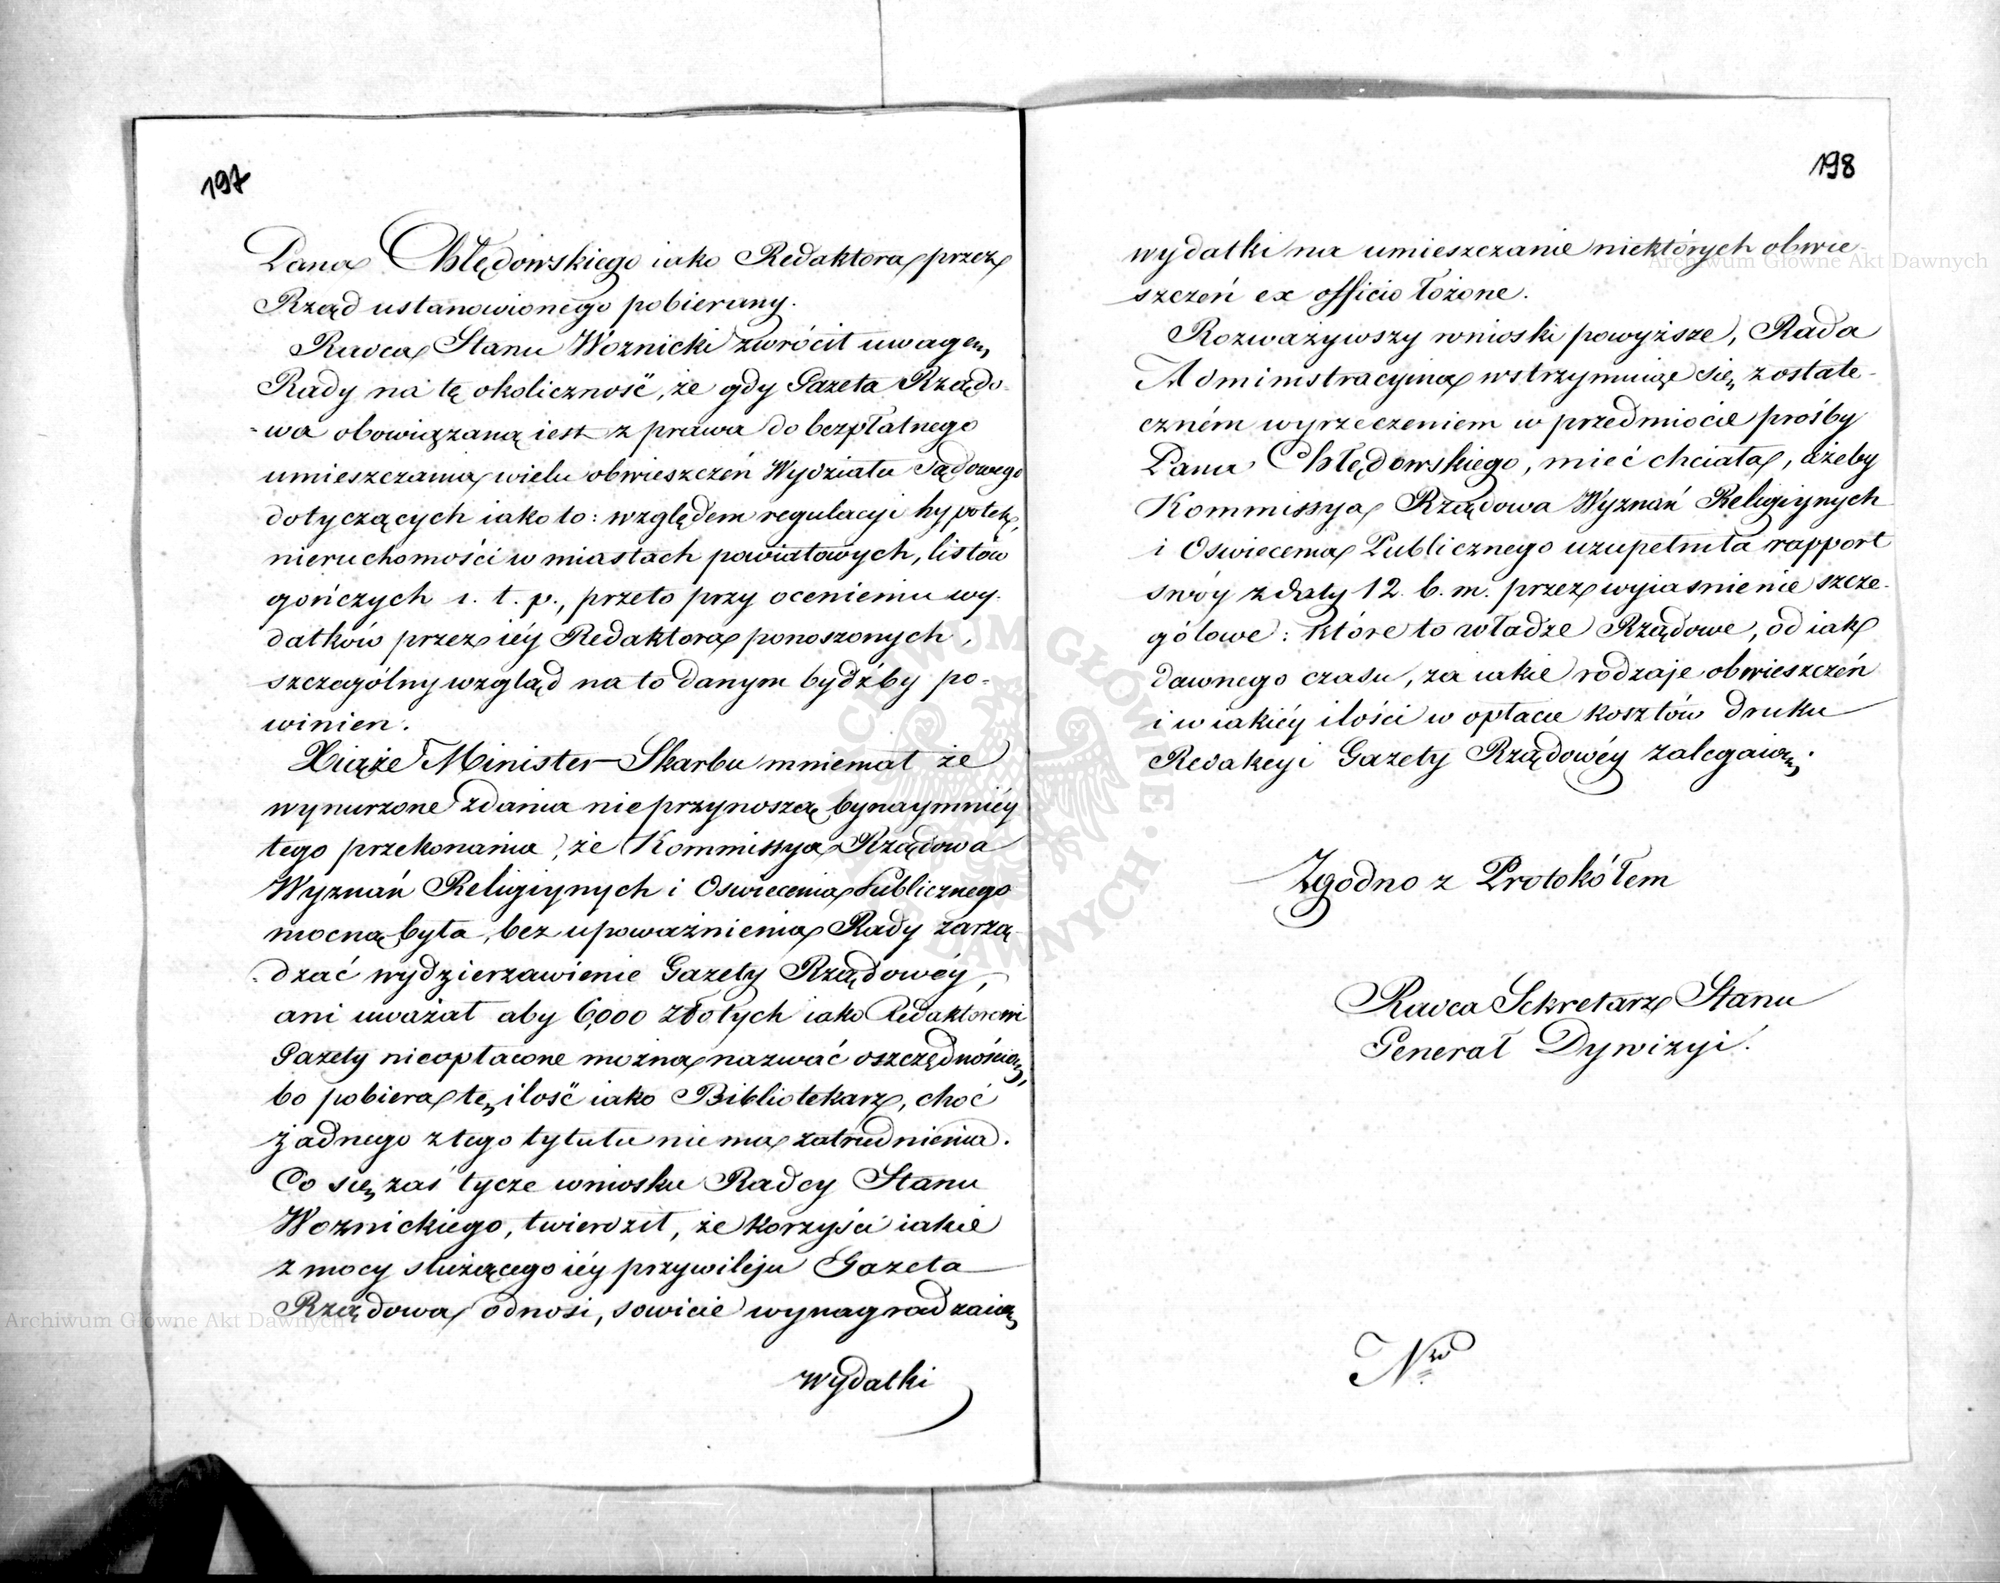 197
Pana Chłędowskiego iako Redaktora przez
Rząd ustanowionego pobierany.
Radca Stanu Woznicki zwrócił uwagę
Rady na tę okoliczność, że gdy Gazeta Rządo-
-wa obowiązaną iest z prawa do bezpłatnego
umieszczania wielu obwieszczeń Wydziału Sądowego
dotyczących iako to: względem regulacyi hypotek,
nieruchomości w miastach powiatowych, listów
gończych i. t. p., przeto przy ocenieniu wy-
datków przez iéy Redaktora ponoszonych,
szczególny wzgląd na to danym bydźby po-
winien.
Xiąże Minister Skarbu mniemał że
wynurzone zdania nie przynoszą bynaymniéy
tego przekonania, że Kommissya Rządowa
Wyznań Religiynych i Oswiecenia Publicznego
mocną była, bez upoważnienia Rady zarzą-
-dzać wydzierzawienie Gazety Rządowéy,
ani uważał aby 6,000 złotych iako Redaktorowi
Gazety nieopłacone można nazwać oszczędnością,
bo pobiera tę ilość iako Bibliotekarz, choć
żadnego z tego tytułu nie ma zatrudnienia.
Co się zaś tycze wniosku Radcy Stanu
Woznickiego, twierdził, że korzyści iakie
z mocy służącego iéy przywileju Gazeta
Rządowa odnosi, sowicie wynagradzaią
wydatki
198
wydatki na umieszczanie niektórych obwie-
szczeń ex officio łożone.
Rozważywszy wnioski powyższe, Rada
Administracyina wstrzymuiąc się z ostate-
czném wyrzeczeniem w przedmiocie prośby
Pana Chłędowskiego, mieć chciała, ażeby
Kommissya Rządowa Wyznań Religiynych
i Oswiecenia Publicznego uzupełniła rapport
swóy z daty 12. b. m. przez wyiasnienie szcze-
gółowe: które to władze Rządowe, od iak
dawnego czasu, za iakie rodzaje obwieszczeń
i w iakiéy ilości w opłacie kosztów druku
Redakcyi Gazety Rządowéy zalegaią.
Zgodno z Protokółem
Radca Sekretarz Stanu
Generał Dywizyi.
Nro
Archiwum Główne Akt Dawnych
Archiwum Główne Akt Dawnych
ARCHIWUM GŁÓWNE AKT DAWNYCH